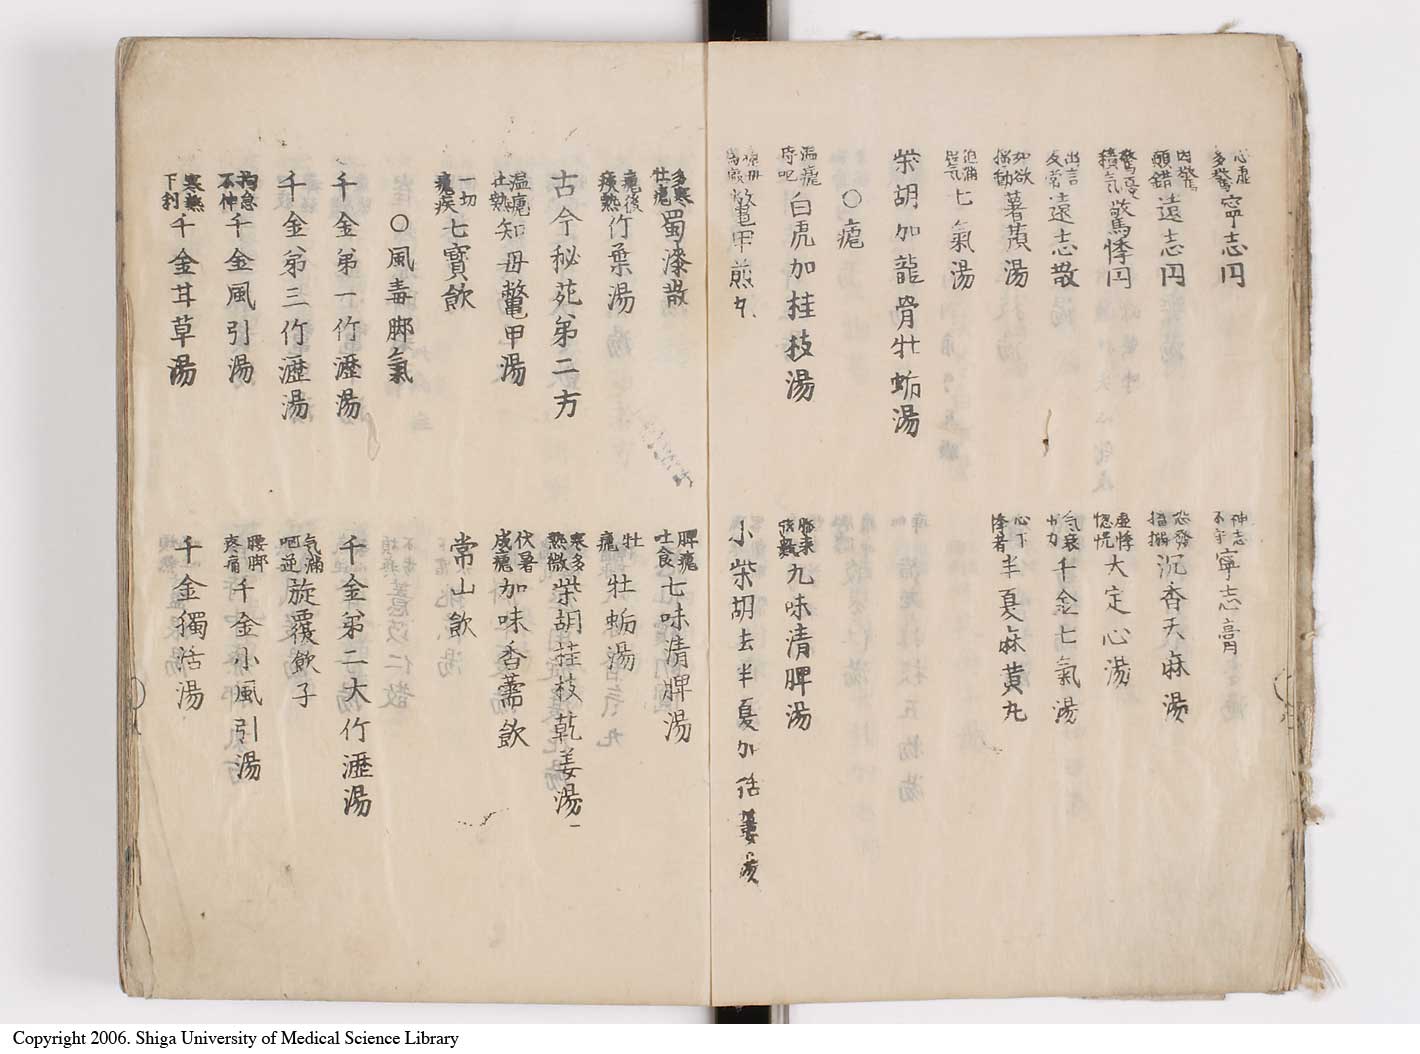 心虚多驚 寧志円
神志不守 寧志膏
因驚顛錯 遠志円
恐發搐搦 沉香天麻湯
驚憂積気 驚悸円
虚悸惚恍 大定心湯
出言反常 遠志散
気衰少力 千金七氣湯
如欲揺動 薯蕷湯
心下悸者 半夏麻黄丸
七氣湯
柴胡加龍骨牡蛎湯
○瘧
温瘧時呕 白虎加桂枝湯
脉来弦數 九味清脾湯
鼈甲煎丸
小柴胡去半夏加栝蔞湯
多寒牡瘧 蜀漆散
脾瘧吐食 七味清脾湯
瘧後痰熱 竹葉湯
牡瘧 牡蛎湯
古今秘苑第二方
寒多熱微 柴胡桂枝乾姜湯
温瘧壮熱 知母鼈甲湯
伏暑成瘧 加味香薷飲
一切瘧疾 七寶飲
常山飲
○風毒脚氣
千金第一竹瀝湯
千金第二大竹瀝湯
千金第三竹瀝湯
気滿呕逆 旋覆飲子
拘急不伸 千金風引湯
腰脚疼痛 千金小風引湯
寒熱下利 千金茸草湯
千金獨活湯
Copyright 2006. Shiga University of Medical Science Library